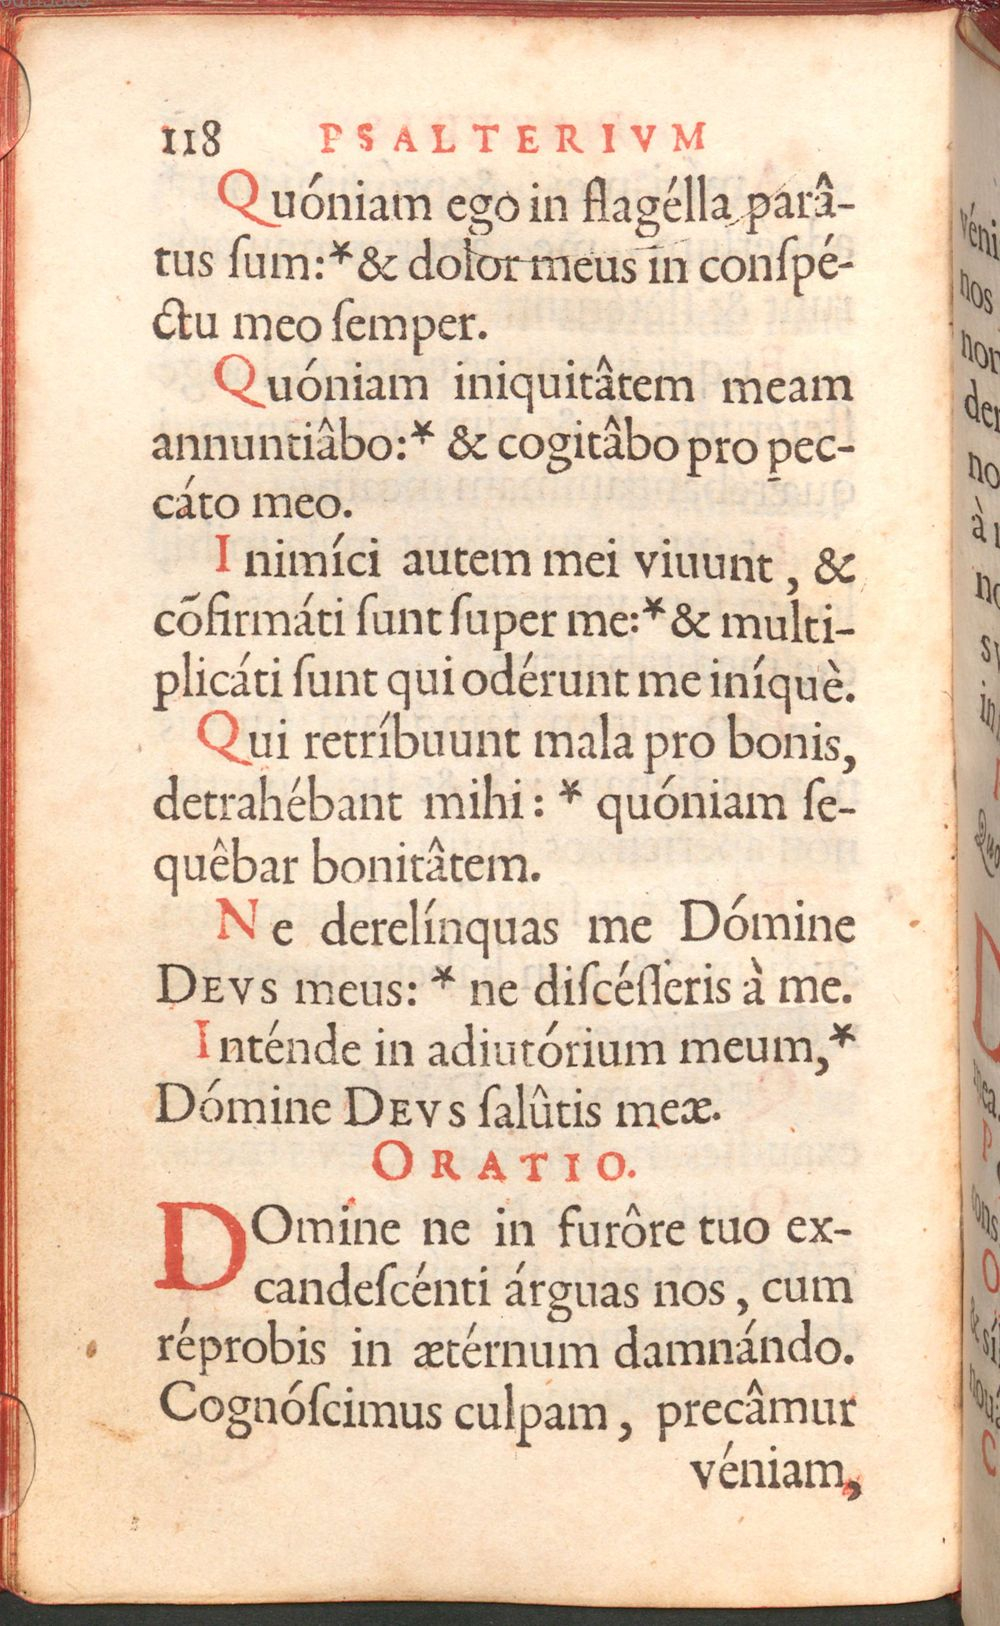 118 PSALTERIVM
Quóniam ego in flagélla parâ-
tus ſum:* & dolor meus in conſpé-
ctu meo ſemper.
Quóniam iniquitâtem meam
annuntiâbo:* & cogitâbo pro pec-
cáto meo.
Inimíci autem mei viuunt, &
cõfirmáti ſunt ſuper me:* & multi-
plicáti ſunt qui odérunt me iníquè.
Qui retríbuunt mala pro bonis,
detrahébant mihi: * quóniam ſe-
quêbar bonitâtem.
Ne derelínquas me Dómine
DEVS meus: * ne diſcéſſeris à me.
Inténde in adiutórium meum,*
Dómine DEVS ſalûtis meæ.
ORATIO.
DOmine ne in furôre tuo ex-
candeſcénti árguas nos, cum
réprobis in ætérnum damnándo.
Cognóſcimus culpam, precâmur
véniam,